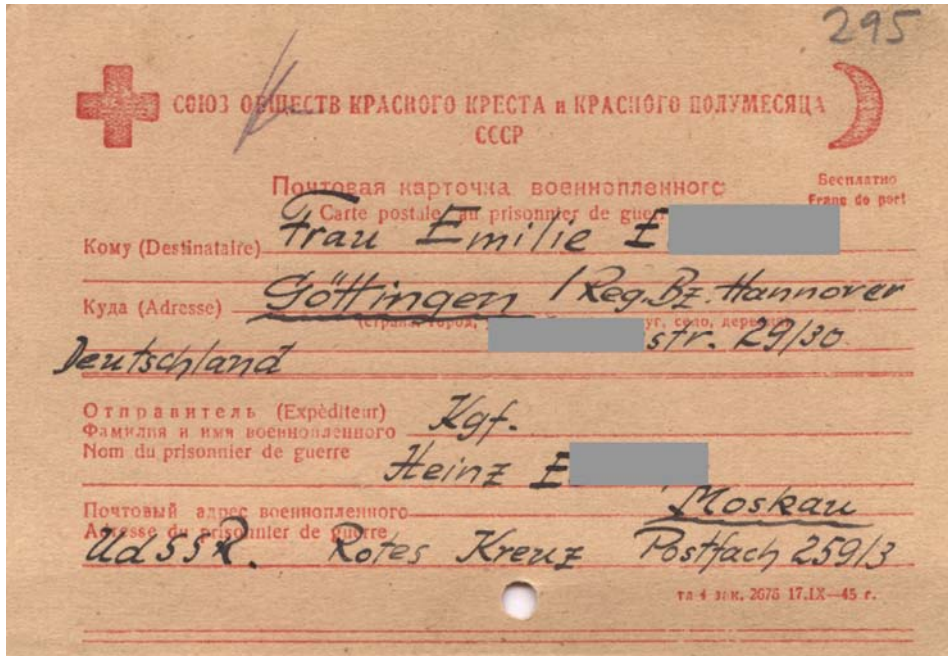 295
СОЮЗ ОБЩЕСТВ КРАСНОГО КРЕСТА и КРАСНОГО ПОЛУМЕСЯЦА
СССР
Почтовая карточка военнопленного
Carte postale au prisonnier de guerre
Бесплатно
Franc de port
Кому (Destinataire) Frau Emilie E
Куда (Adresse) Göttingen / Reg. Bz. Hannover
(страна, город, уг, село, деревня)
str. 29/30
Deutschland
Отправитель (Expéditeur)
Фамилия и имя военнопленного Kgf.
Nom du prisonnier de guerre
Heinz E
Почтовый адрес военнопленного Moskau
Adresse du prisonnier de guerre
UdSSR. Rotes Kreuz Postfach 259/3
зак. 2676 17.IX—45 г.